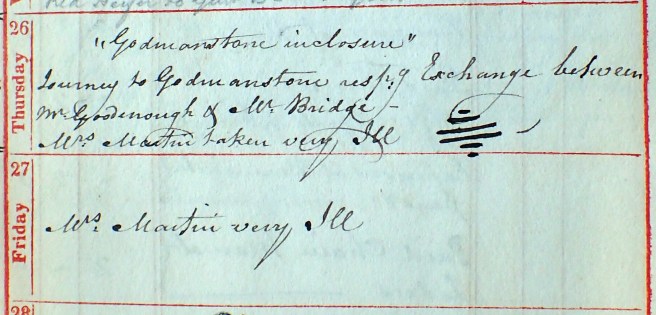 26
Thursday
"Godmanstone inclosure"
Journey to Godmanstone resp.g Exchange between
Mr Goodenough & Mr Bridge -
Mrs Martin taken very Ill
27
Friday
Mrs Martin very Ill
28